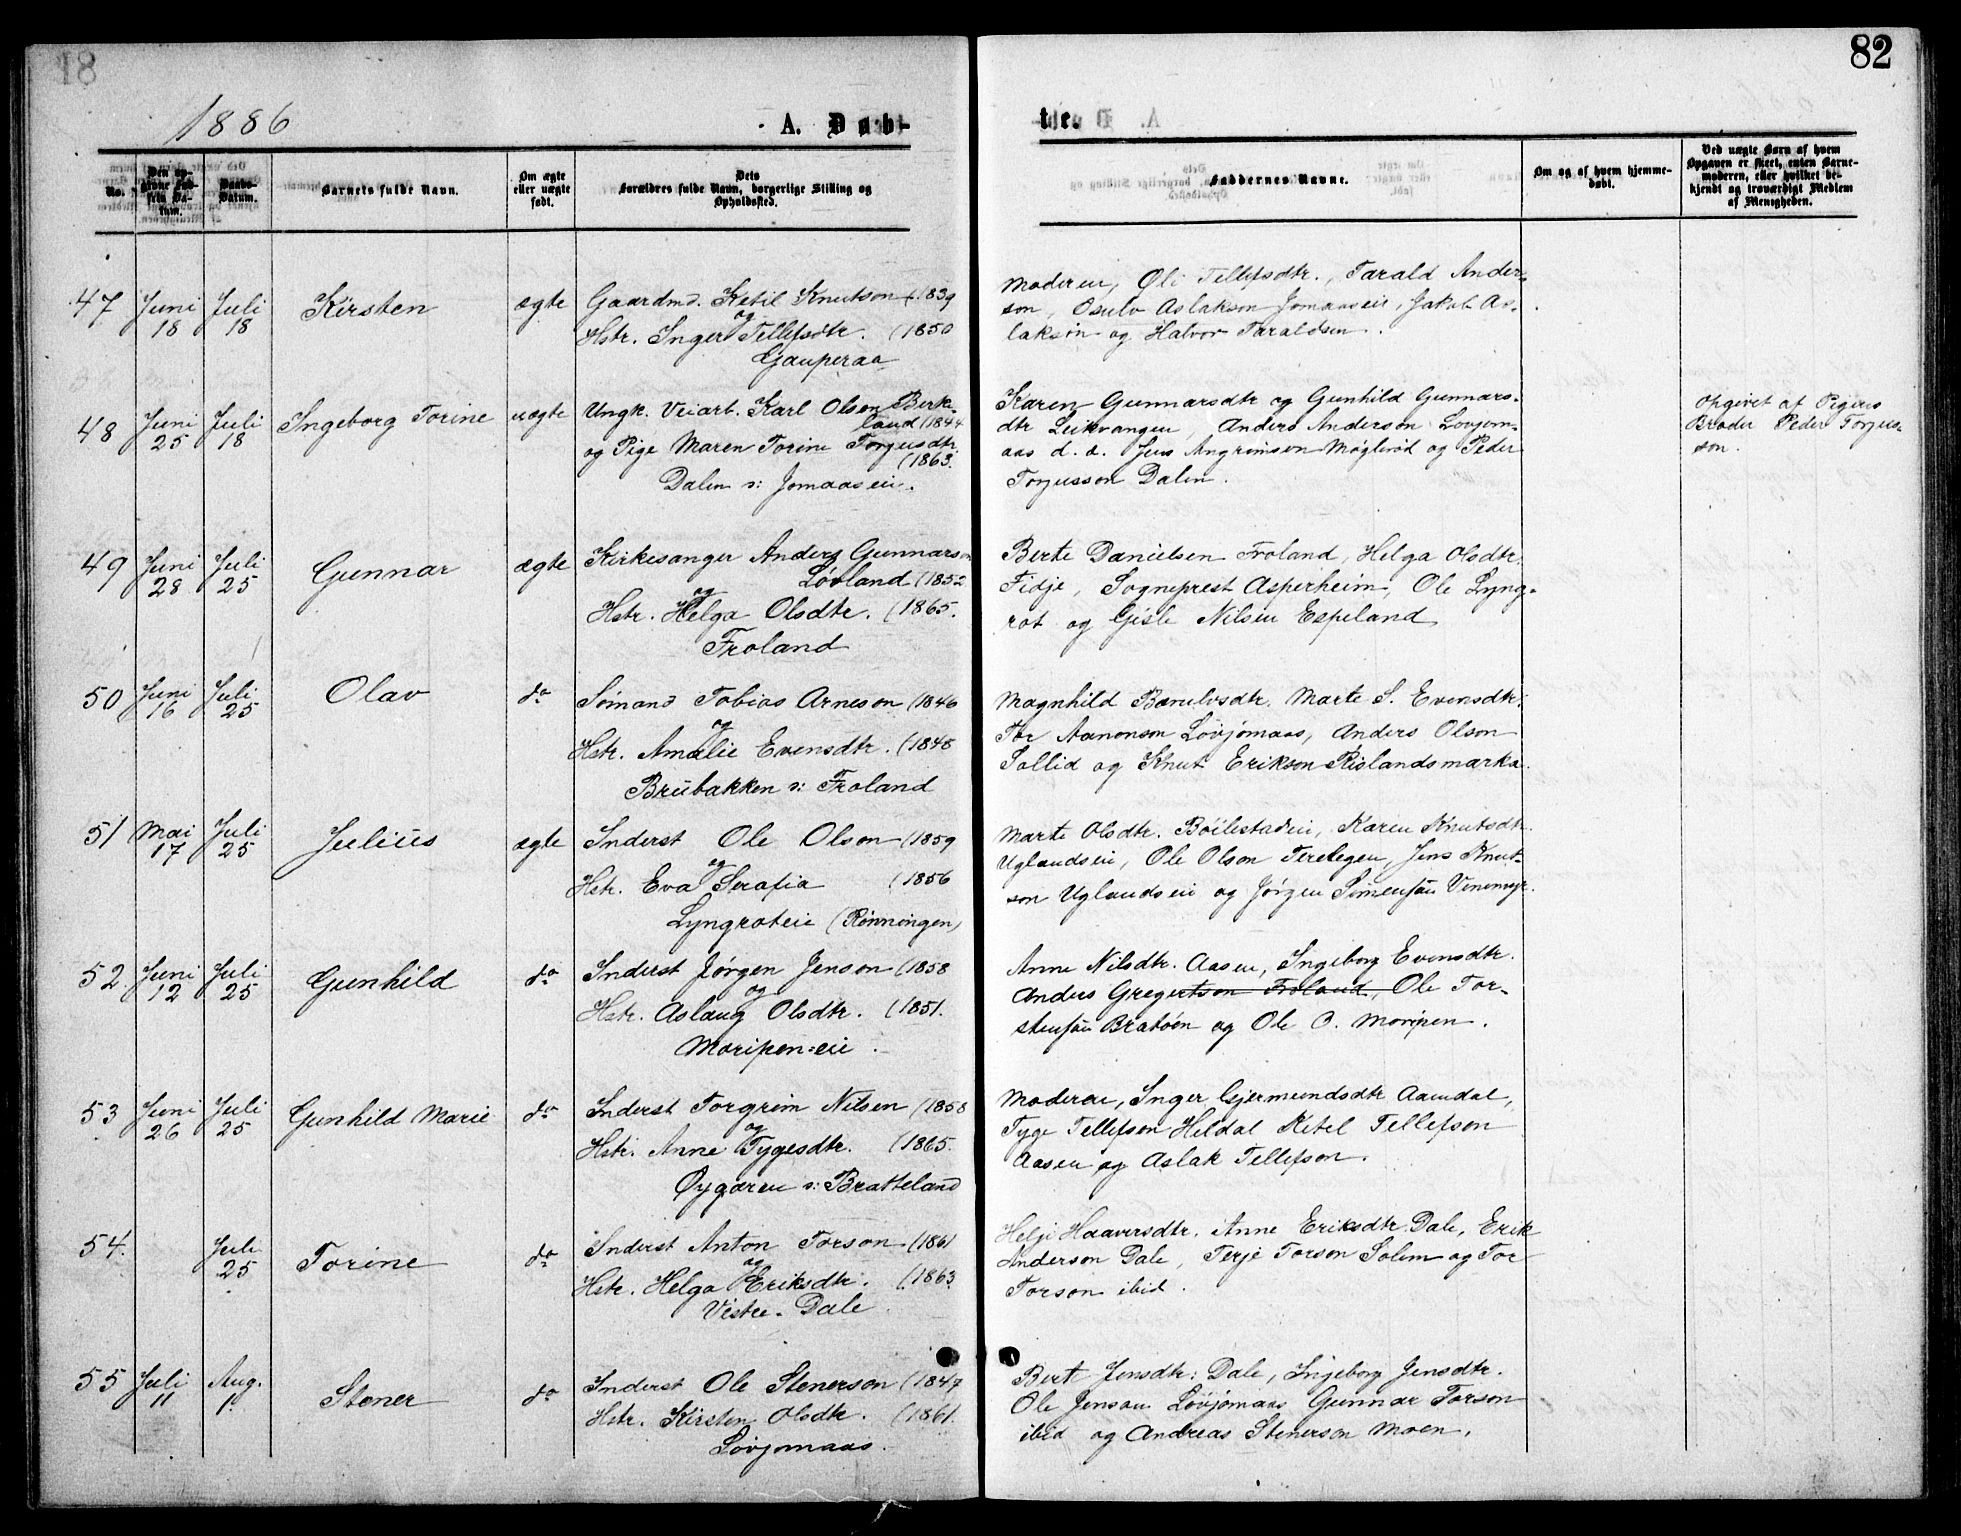 82
1886
A. Døb-
te.
No.
Den op-
givne Fød-
sels Da-
tum.
Daabs-
Datum.
Barnets fulde Navn.
Om ægte
eller uægte
født.
Dets
Forældres fulde Navn, borgerlige Stilling og
Opholdssted.
Faddernes Navne.
Om og af hvem hjemme-
døbt.
Ved uægte Børn af hvem
Opgaven er skeet, enten Barne-
moderen, eller hvilket be-
kjendt og troværdigt Medlem
af Menigheden.
47 Juni 18 Juli 18 Kirsten ægte
Gaardmd. Ketil Knutson (1839
og
Hstr. Inger Tellefsdtr. (1850
Gauperaa
Moderen, Oli Tellefsdtr., Tarald Ander-
son, Osulv Aslakson Jomaaseie, Jakob As-
lakson og Halvor Taraldsen.
48 Juni 25 Juli 18 Ingeborg Torine uægte
Ungk. Veiarb. Karl Olsen Birke-
land (1844
og Pige Maren Torine Torjusdtr.
(1863.
Dalen s: Jomaaseie.
Karen Gunnarsdtr og Gunhild Gunnars-
dtr Leikvangen, Anders Anderson Lovjom-
aas d. a. Jens Angrimsen Møglirød og Peder
Torjusson Dalen.
Opgivet af Pigens
Broder Peder Torjus-
son.
49 Juni 28 Juli 25 Gunnar ægte
Kirkesanger Anders Gunnarson
Løvland (1852
og
Hstr. Helga Olsdtr. (1865.
Froland
Berte Danielsen Froland, Helga Olsdtr.
Fidje, Sogneprest Asperheim, Ole Lyng-
rot og Gisle Nilsen Espeland
50 Juni 16 Juli 25 Olav do
Sømand Tobias Arneson (1846
og
Hstr. Amalie Evensdtr. (1848
Brubakken s: Froland
Magnhild Bærulvsdtr. Marte S. Evensdtr.
Tor Aanonson Løvjomaas, Anders Olson
Sollid og Knut Erikson Rislandsmarka.
51 Mai 17 Juli 25 Julius ægte
Inderst Ole Olson (1859
og
Hstr. Eva Serafia (1856
Lyngroteie (Rønningen)
Marte Olsdtr. Bøilestadeie, Karen Knutsdtr.
Uglandseie, Ole Olson Tveitegen, Jens Knut-
son Uglandseie og Jørgen Simensøn
52 Juni 12 Juli 25 Gunhild do
Inderst Jørgen Jenson (1858
og
Hstr. Aslaug Olsdtr. (1851.
Moripen=eie.
Anne Nilsdtr. Aasen, Ingeborg Evensdtr.
Anders Gregertson Froland, Ole Tor-
stensøn Bratøen og Ole O. Moripen.
53 Juni 26 Juli 25 Gunhild Marie do
Inderst Torgrim Nilsen (1858
og
Hstr. Anne Tygesdtr. (1865.
Øygaren s: Bratteland
Moderen, Inger Gjermundsdtr Aamdal,
Tyge Tellefson Heldal Ketel Tellefson
Aasen og Aslak Tellefson.
54. Juli 25 Torine do
Inderst Anton Torson (1861
og
Hstr. Helga Eriksdtr. (1863
Vestre-Dale.
Helje Haaversdtr. Anne Eriksdtr. Dale, Erik
Anderson Dale, Terje Torson Solem og Tor
Torson ibid.
55 Juli 11 Aug. 1. Stener do
Inderst Ole Stenerson (1847
Hstr. Kirsten Olsdtr. (1861.
Løvjomaas.
Bert Jensdtr: Dale, Ingeborg Jensdtr.
Ole Jenson Løvjomaas Gunnar Torson
ibid og Andreas Stenerson Moen.